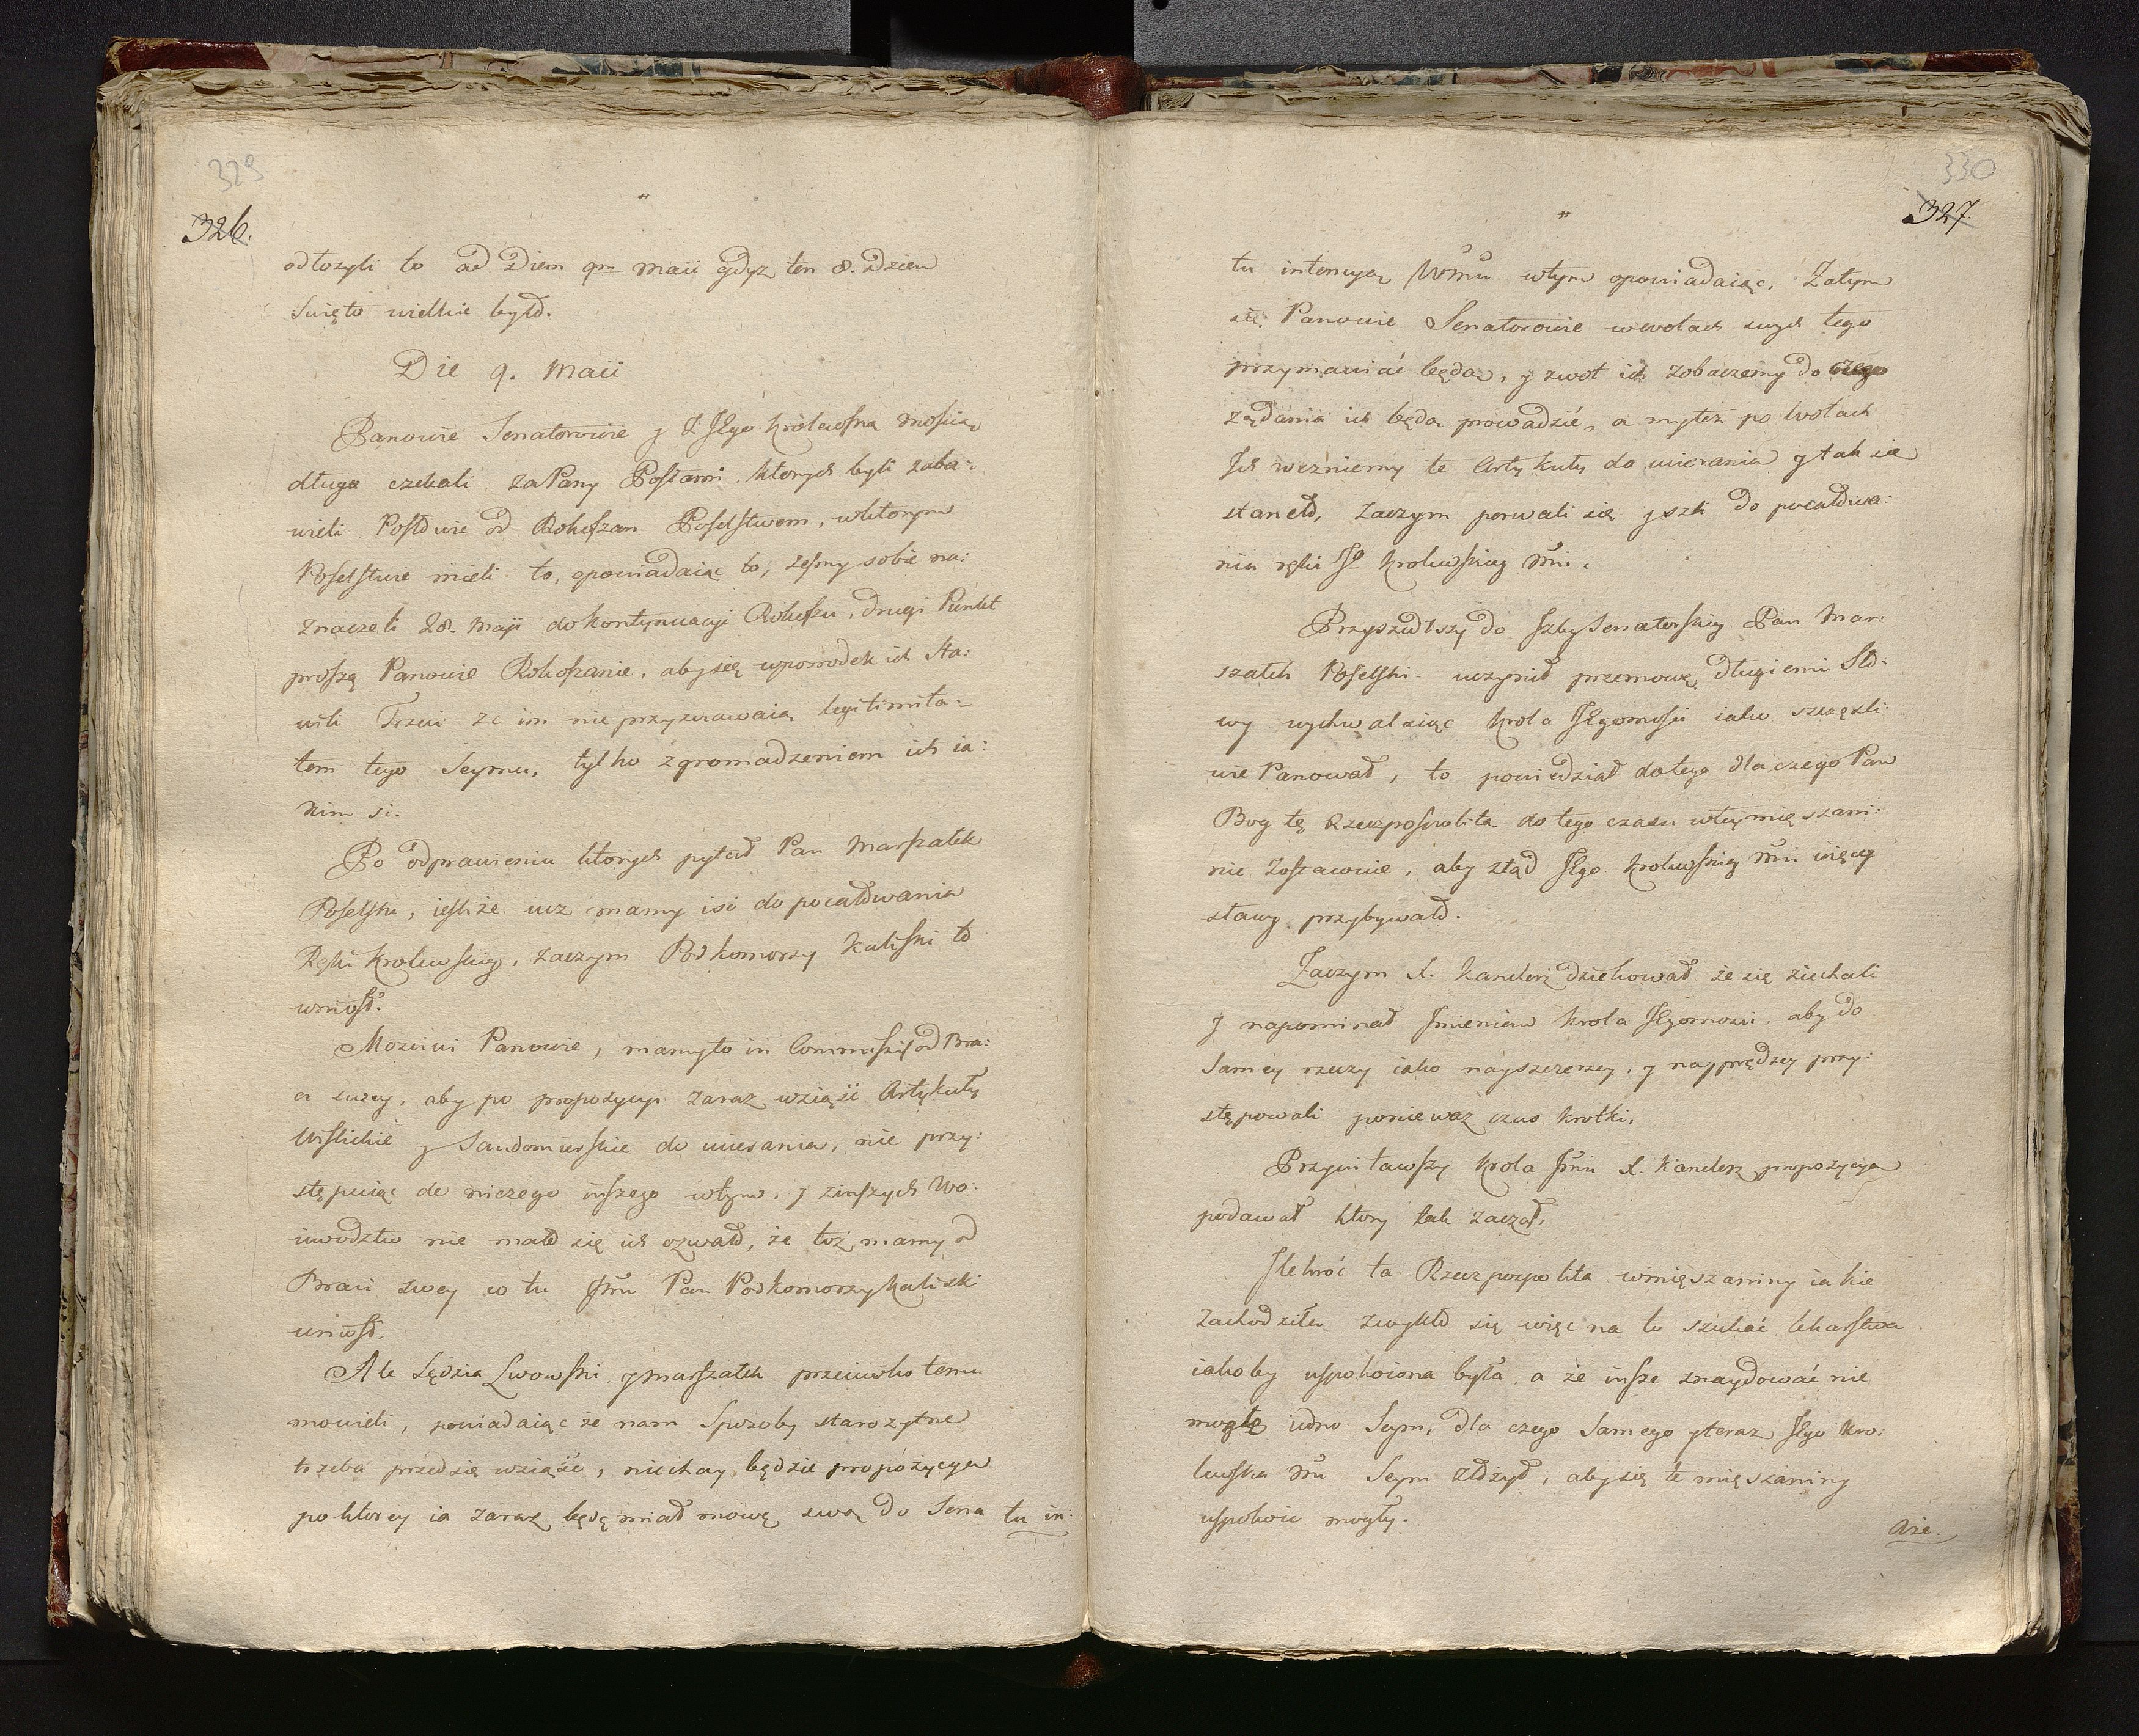 329
326.
odłozyli to ad Diem 9m Maii gdyz ten 8. Dzien
Swięto wielkie było.
Die 9. Maii
Panowie Senatorowie y z JEgo Krolewską Moscią
długo czekali za Pany Posłami, ktorych byli zaba:
wili Posłowie od Rokoszan Poselstwem, wktorym
Poselstwie mieli to, opowiadaiąc to, zesmy sobie na:
znaczeli 28. Maji do kontynuacyi Rokoszu, drugi Punkt
proszą Panowie Rokoszanie, aby się wporządek ich sta:
wili Trzeci ze im nie przyznawaią legitimita:
tem tego Seymu, tylko zgromadzeniem ich ia:
kim si.
Po odprawieniu ktorych pytał Pan Marszałek
Poselski, iesliże iuz mamy iść do pocałowania
Ręki Krolewskiey, zaczym Podkomorzy Kaliski to
wniosł.
Mosciwi Panowie, mamy to in Commissis od Bra:
ci swey, aby po propozycyi zaraz wziąść Artykuły
Wislickie y Sandomierskie do ucierania, nie przy:
stępuiąc do niczego inszego wtym, y zinszych Wo:
iewodztw nie mało się ich ozwało, że toż mamy od
Braci swey co tu Jmć Pan Podkomorzy Kaliski
wniosł.
Ale Sędzia Lwowski y Marszałek przeciwko temu
mowili, powiadaiąc że nam Sposoby starozytne
trzeba przed się wziąść, niechay będzie propozycya
po ktorey ia zaraz będę miał mowę swą do Sena tu in:
330
327.
tu intencyą WMM wtym opowiadaiąc, Zatym
się Panowie Senatorowie wwotach swych tego
przymawiać będą, y zwot ich zobaczemy do czego
ządania ich będą prowadzić, a myteż po wotach
Ich wezniemy te Artykuły do ucierania y tak się
stanęło, zaczym porwali się y szli do pocałowa:
nia ręki JO Krolewskiey Mci.
Przyszedłszy do Izby Senatorskiey Pan Mar:
szałek Poselski uczynił przemowę, długiemi Sło:
wy wychwalaiąc Krola JEgomosci iako szczęśli:
wie Panował, to powiedział do tego dla czego Pan
Bog tę Rzeczpospolitą do tego czasu wtey mięszani:
nie Zostawuie, aby ztąd JEgo Krolewskiey Mci więcey
sławy przybywało.
Zaczym X. Kanclerz dziękował że się ziechali
y napominał Imieniem Krola JEgomosci, aby do
samey rzeczy iako nayszczerzey, y nayprędzey przy:
stępowali poniewaz czas krotki.
Przywitawszy Krola Jmci X. Kanclerz propozycyą
podawał ktory tak zaczął.
Ilekroć ta Rzeczpospolita wmięszaniny iakie
zachodziła zwykło się więc na to szukać lekarstwa
iakoby uspokoiona była, a że insze znaydować nie
mogło iedno Seym, dla czego Samego y teraz JEgo Kro:
lewska Mć Seym złożył, aby się te mięszaniny
uspokoić mogły.
Aże.